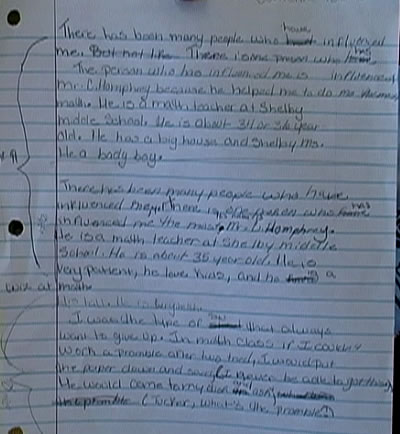 There has been many people who have influenced
me. But not like There is one person who has
The person who has influenced me is influenced
Mr. C. Homphrey because he helped me to do
math. He is a math teacher at Shelby
middle School. He is about 34 or 36 year
old. He has a big house and Shelby Ms.
He a body boy.
There has been many people who have
influenced me, There is one person who has
influenced me the most Mr. L. Homphrey.
He is a math teacher at Shelby middle
School. He is about 35 year old. He is
very patient, he love kids, and he is a
wiz at math
He is
I was the type of that always
want to give up. In math class if I couldn't
work a promble after two tries, I would put
the paper down and say, I never be able to
He would come to my and ask
(Tucker, what's the promble?)